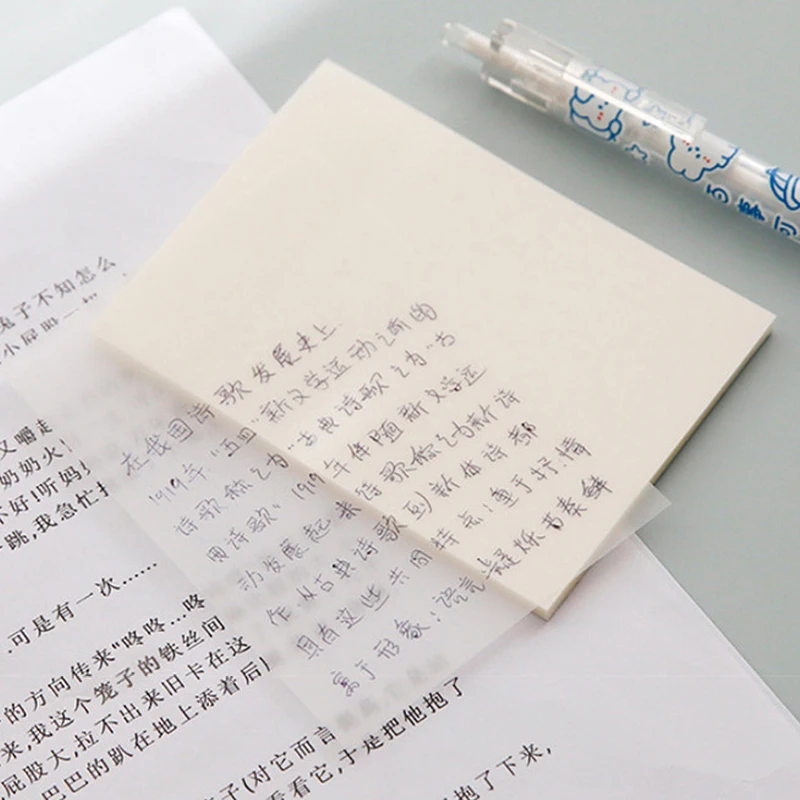 兔子不知怎么
小屁股一
又嚼走
奶奶火!
不好!听妈
跳,我急忙打
可是有一次……
的方向传来"咚咚…咚
来,我这个笼子的铁丝间
屁股大,拉不出来旧卡在这
巴巴的趴在地上添着后)
子(对它而言
看看它,于是把他抱了
抱了下来,
在我国诗歌发展史上,
1919年"五四"新文学运动之前的
诗歌称之为"古典诗歌之为"古
用诗歌"1919年伴随新文学运
动发展起来诗歌称之为新诗
作.从古典诗歌到新体诗都
具有这些共同特点:重于抒情
富于形象;语言凝炼节奏鲜